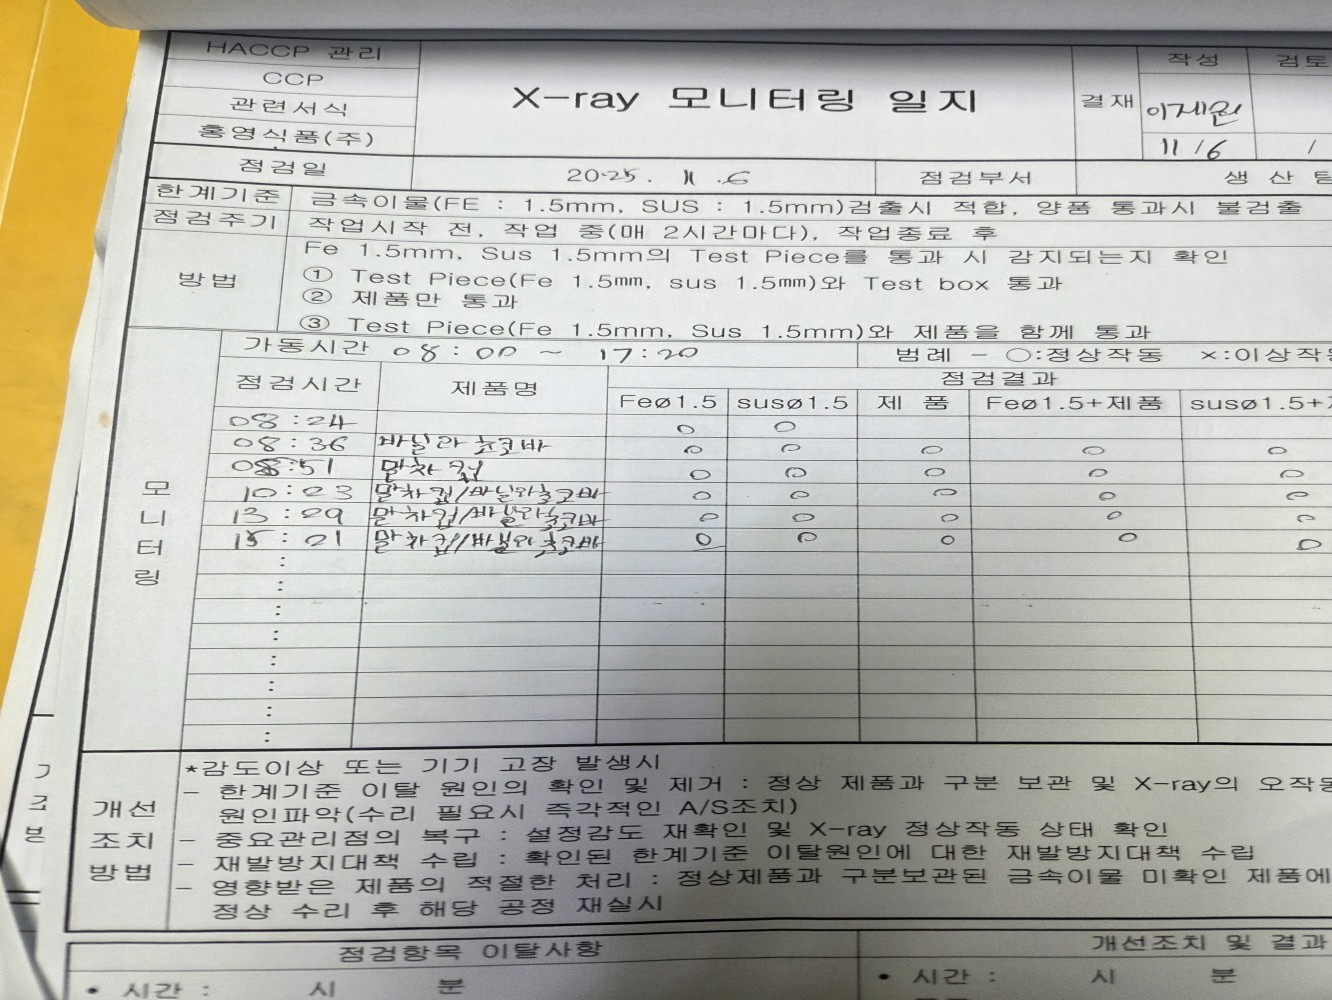 HACCP 관리
CCP
관련서식
홍영식품(주)
X-ray 모니터링 일지
결재
작성
검토
이제원
11/6
/
점검일
2025. 11 .6
점검부서
생 산 팀
한계기준
금속이물(FE : 1.5mm, SUS : 1.5mm)검출시 적합, 양품 통과시 불검출
점검주기
작업시작 전, 작업 중(매 2시간마다), 작업종료 후
방법
Fe 1.5mm, Sus 1.5mm의 Test Piece를 통과 시 감지되는지 확인
① Test Piece(Fe 1.5mm, sus 1.5mm)와 Test box 통과
② 제품만 통과
③ Test Piece(Fe 1.5mm, Sus 1.5mm)와 제품을 함께 통과
모니터링
가동시간 08 : 00 ~ 17:20
범례 - ○:정상작동 ×:이상작동
점검시간 제품명 점검결과
Feø1.5 susø1.5 제 품 Feø1.5+제품 susø1.5+제
08 : 24 ○ ○
08 : 36 바닐라 초코바 ○ ○ ○ ○ ○
08:51 말차 컵 ○ ○ ○ ○ ○
10 : 23 말차컵/바닐라초코바 ○ ○ ○ ○ ○
13 : 29 말차컵/바닐라초코바 ○ ○ ○ ○ ○
15 : 01 말차컵/바닐라초코바 ○ ○ ○ ○ ○
:
:
:
:
:
:
:
:
개선
조치
방법
*감도이상 또는 기기 고장 발생시
- 한계기준 이탈 원인의 확인 및 제거 : 정상 제품과 구분 보관 및 X-ray의 오작동
원인파악(수리 필요시 즉각적인 A/S조치)
- 중요관리점의 복구 : 설정감도 재확인 및 X-ray 정상작동 상태 확인
- 재발방지대책 수립 : 확인된 한계기준 이탈원인에 대한 재발방지대책 수립
- 영향받은 제품의 적절한 처리 : 정상제품과 구분보관된 금속이물 미확인 제품에
정상 수리 후 해당 공정 재실시
점검항목 이탈사항
개선조치 및 결과
• 시간 : 시 분
• 시간 : 시 분